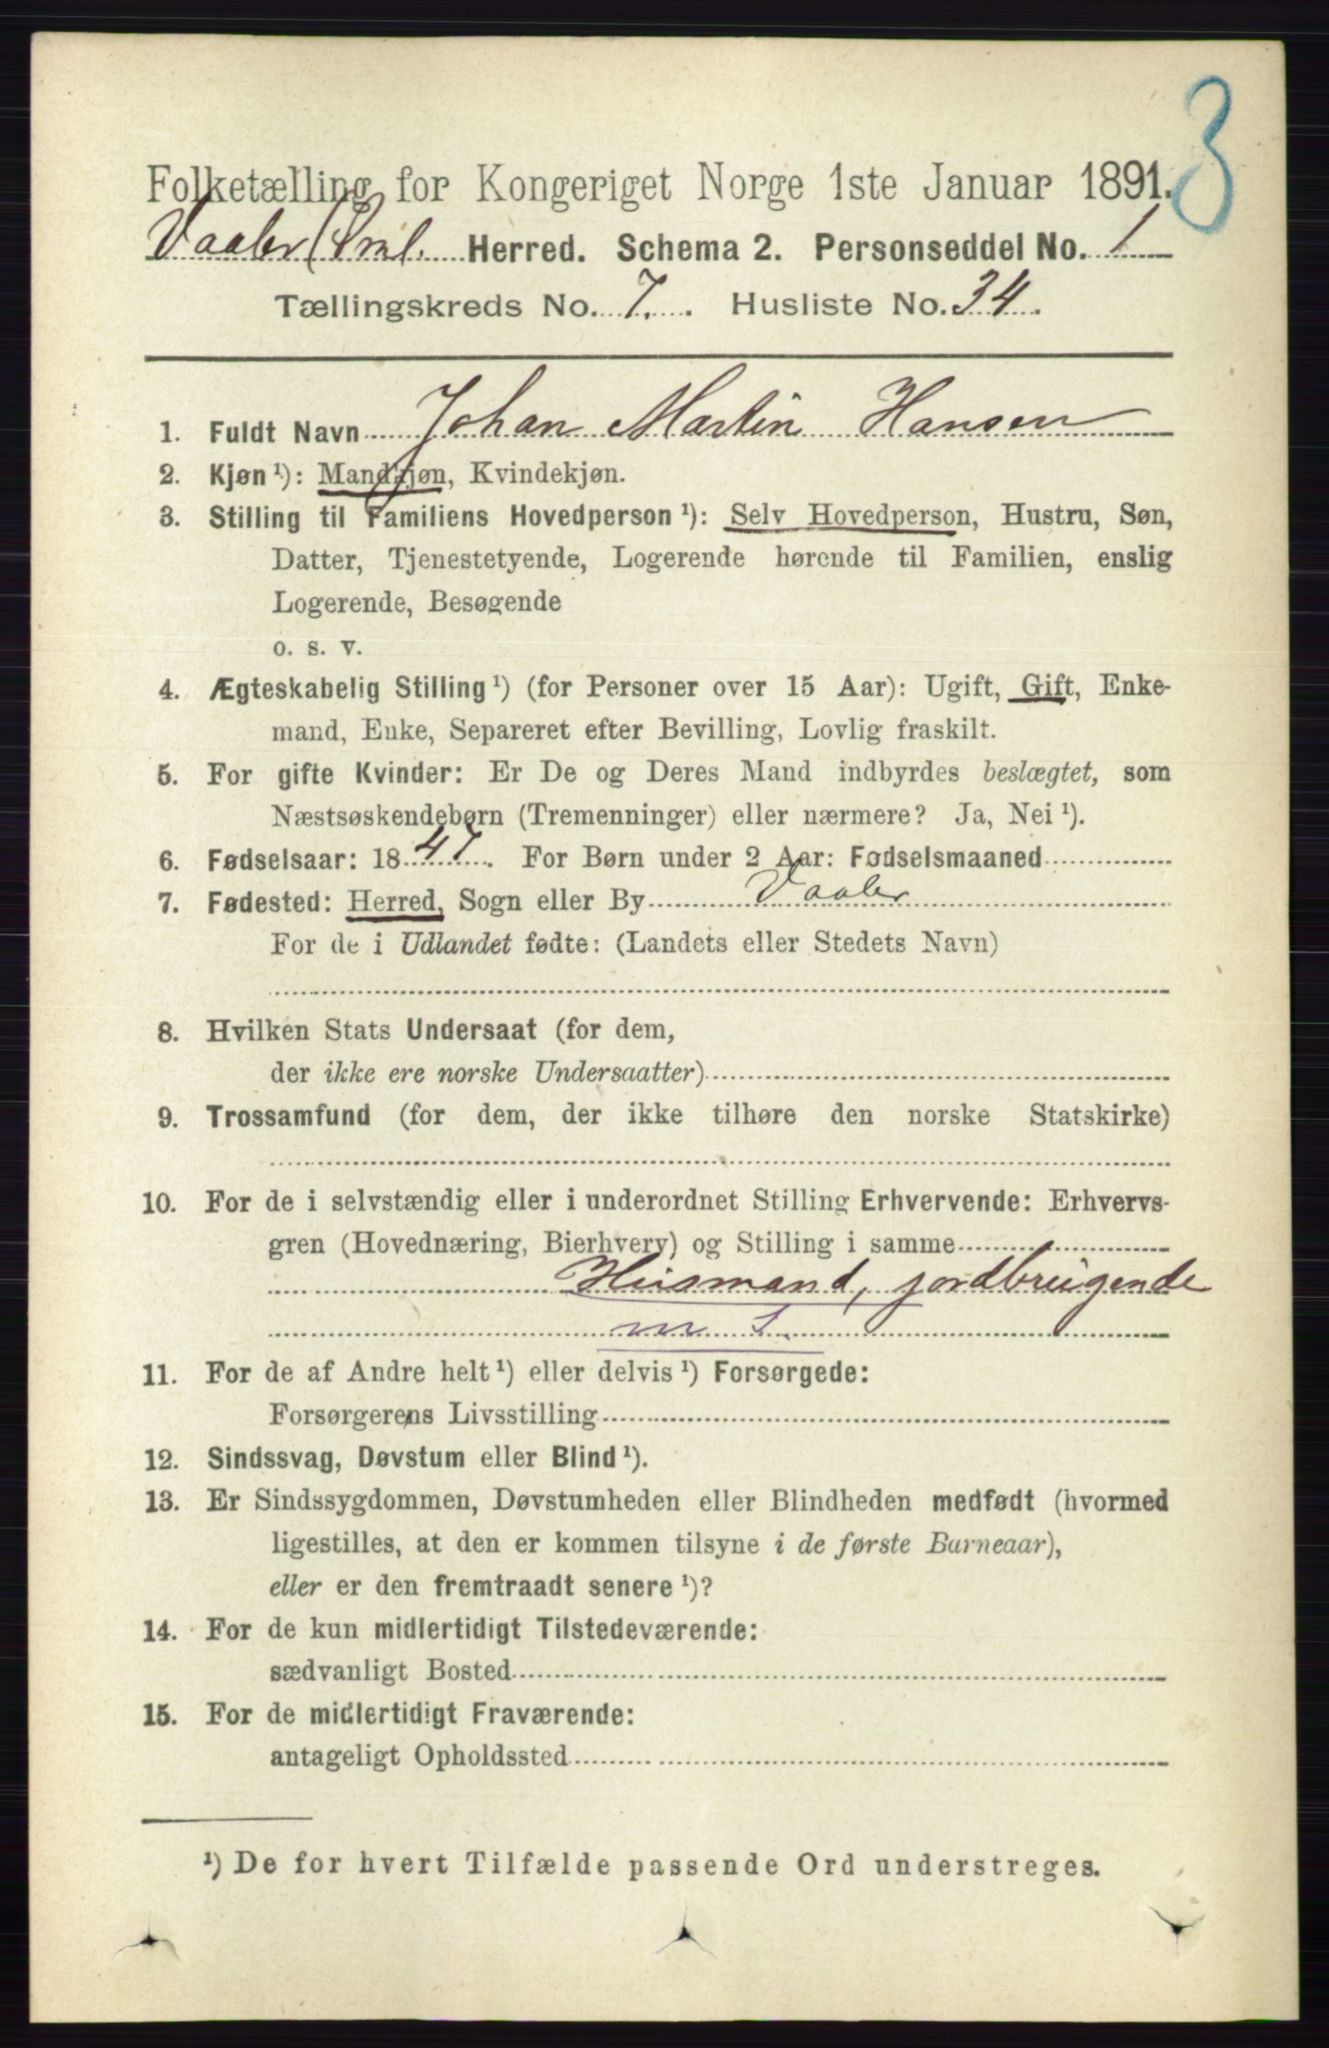 3
Folketælling for Kongeriget Norge 1ste Januar 1891.
Vaaler (Sml. Herred. Schema 2. Personseddel No. 1
Tællingskreds No. 7. Husliste No. 34.
1. Fuldt Navn Johan Martin Hansen
2. Kjøn ¹): Mandkjøn, Kvindekjøn.
3. Stilling til Familiens Hovedperson ¹): Selv Hovedperson, Hustru, Søn,
Datter, Tjenestetyende, Logerende hørende til Familien, enslig
Logerende, Besøgende
o. s. v.
4. Ægteskabelig Stilling ¹) (for Personer over 15 Aar): Ugift, Gift, Enke-
mand, Enke, Separeret efter Bevilling, Lovlig fraskilt.
5. For gifte Kvinder: Er De og Deres Mand indbyrdes beslægtet, som
Næstsøskendebørn (Tremenninger) eller nærmere? Ja, Nei ¹).
6. Fødselsaar: 1847. For Børn under 2 Aar: Fødselsmaaned
7. Fødested: Herred, Sogn eller By Vaaler
For de i Udlandet fødte: (Landets eller Stedets Navn)
8. Hvilken Stats Undersaat (for dem,
der ikke ere norske Undersaatter)
9. Trossamfund (for dem, der ikke tilhøre den norske Statskirke)
10. For de i selvstændig eller i underordnet Stilling Erhvervende: Erhvervs-
gren (Hovednæring, Bierhverv) og Stilling i samme
Husmand, jordbrugende
m
11. For de af Andre helt ¹) eller delvis ¹) Forsørgede:
Forsørgerens Livsstilling
12. Sindssvag, Døvstum eller Blind ¹).
13. Er Sindssygdommen, Døvstumheden eller Blindheden medfødt (hvormed
ligestilles, at den er kommen tilsyne i de første Barneaar),
eller er den fremtraadt senere ¹)?
14. For de kun midlertidigt Tilstedeværende:
sædvanligt Bosted
15. For de midlertidigt Fraværende:
antageligt Opholdssted
¹) De for hvert Tilfælde passende Ord understreges.